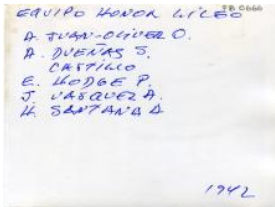 PB 0660
EQUIPO HONOR LICEO
A. JUAN-OLIVER O.
A. DUEÑAS S.
CASTILLO
E. HODGE P.
J VASQUEZ A.
H. SANTANA A
1942